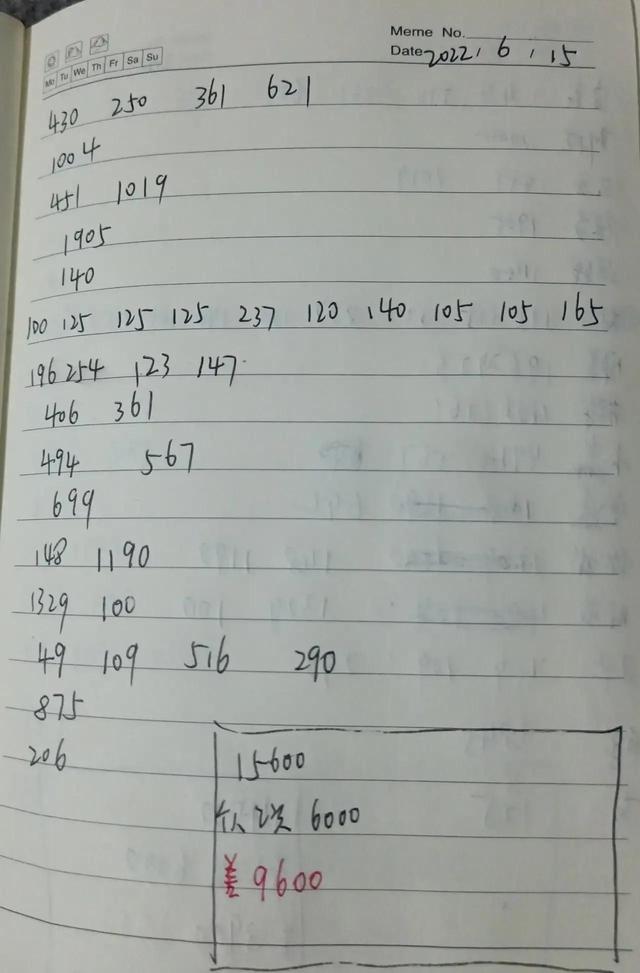 Meme No.
Date 2022. 6. 15
Mo Tu We Th Fr Sa Su
430 250 361 621
1004
451 1019
1905
140
100 125 125 125 237 120 140 105 105 165
196 254 123 147
406 361
494 567
699
148 1190
1329 100
49 109 516 290
875
206
15600
6000
¥ 9600